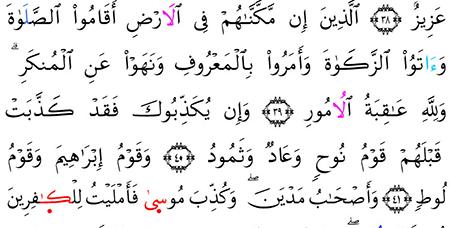 عَزِيزٌ ٣٨ الَّذِينَ إِن مَّكَّنَّٰهُمْ فِى الَارْضِ أَقَامُوا۟ الصَّلَوٰةَ
وَءَاتَوُا۟ الزَّكَوٰةَ وَأَمَرُوا۟ بِالْمَعْرُوفِ وَنَهَوْا۟ عَنِ الْمُنكَرِۗ
وَلِلَّهِ عَٰقِبَةُ الُامُورِ ٣٩ وَإِن يُكَذِّبُوكَ فَقَدْ كَذَّبَتْ
قَبْلَهُمْ قَوْمُ نُوحٍ وَعَادٌ وَثَمُودُ ٤٠ وَقَوْمُ إِبْرَٰهِيمَ وَقَوْمُ
لُوطٍ ٤١ وَأَصْحَٰبُ مَدْيَنَۖ وَكُذِّبَ مُوسٰى فَأَمْلَيْتُ لِلْكٰفِرِينَ